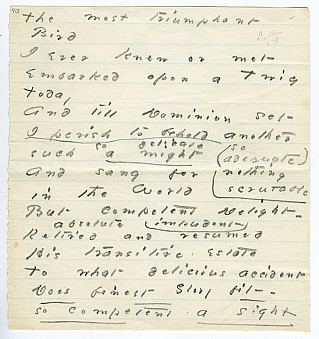 the most Triumphant
Bird
I ever knew or met
Embarked upon a twig
today
And till Dominion set
I perish to behold another
so delicate (so
such a might adequate)
And sang for nothing
scrutable
in the World
But competent Delight -
absolute impudent)
Retired and resumed
His transitive Estate
To what delicious accident
Does finest Glory fit -
so competent a sight